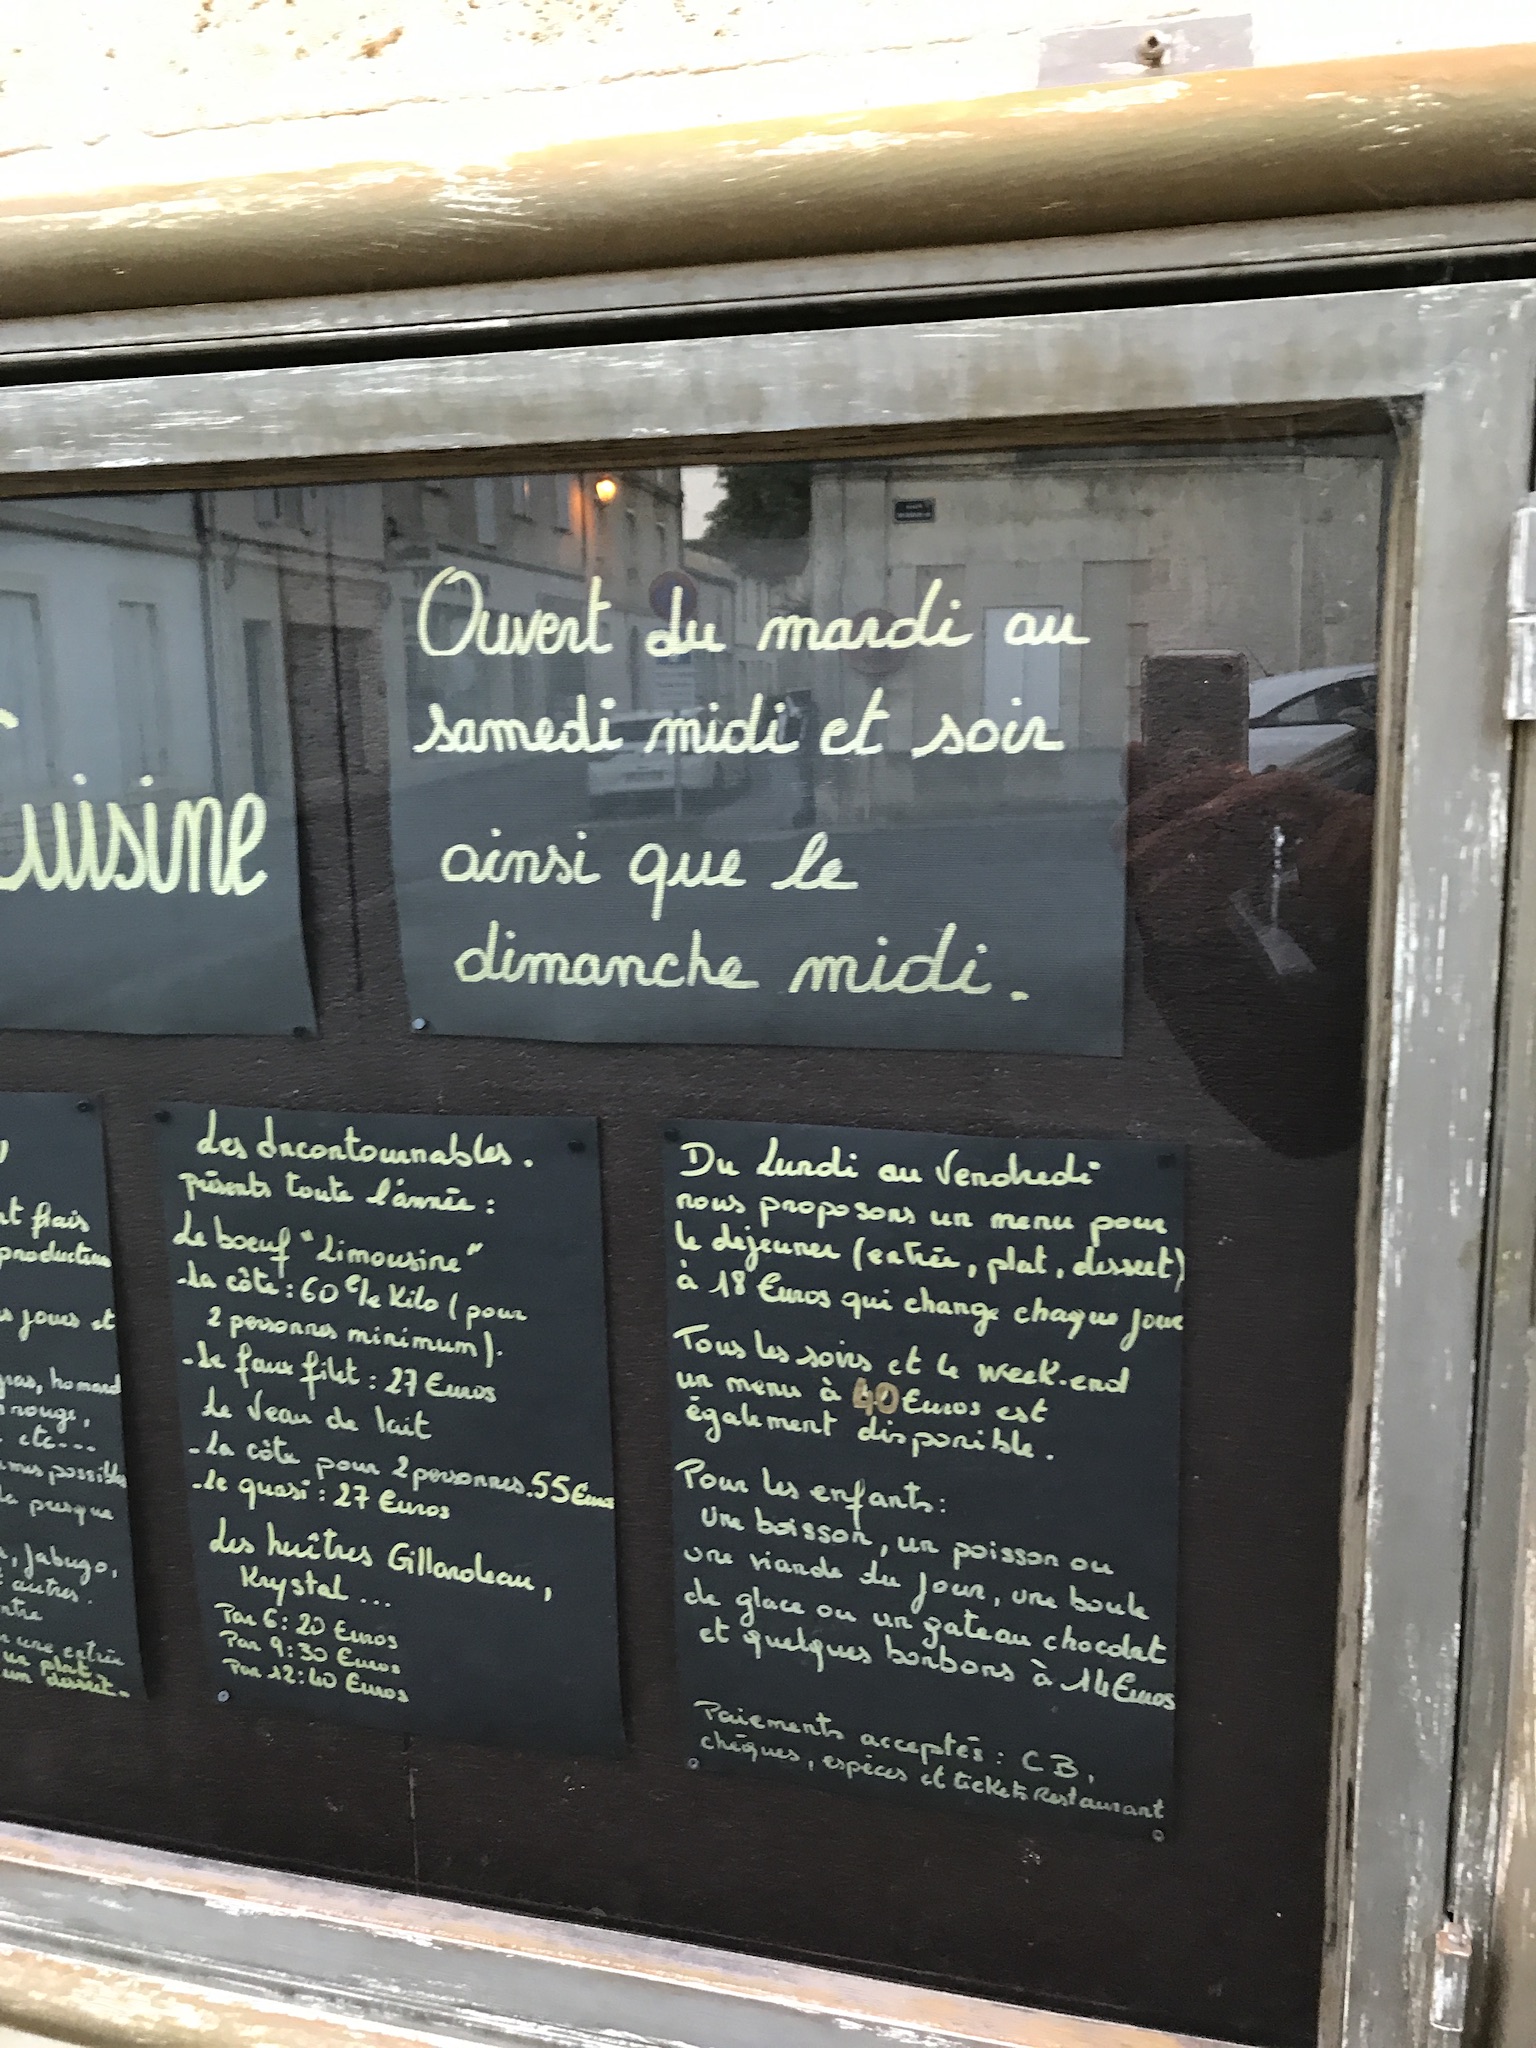 Cuisine
Ouvert du mardi au
samedi midi et soir
ainsi que le
dimanche midi.
frais
production
jours et
gras, homard
rouge,
etc...
possibles
la presque
, Jabugo,
autres.
une entrée
un plat
un dessert.
Les Incontournables.
présents toute l'année :
Le boeuf "Limousine"
-La côte : 60 €/le Kilo (pour
2 personnes minimum).
-Le faux filet : 27 Euros
Le Veau de lait
-La côte pour 2 personnes.55 Euros
-Le quasi : 27 Euros
Les huîtres Gillardeau,
Krystal ...
Par 6 : 20 Euros
Par 9 : 30 Euros
Par 12 : 40 Euros
Du Lundi au Vendredi
nous proposons un menu pour
le déjeuner (entrée, plat, dessert)
à 18 Euros qui change chaque jour
Tous les soirs et le week-end
un menu à 40 Euros est
également disponible.
Pour les enfants:
Une boisson, un poisson ou
une viande du jour, une boule
de glace ou un gateau chocolat
et quelques bonbons à 14 Euros
Paiements acceptés : CB,
chèques, espèces et tickets Restaurant